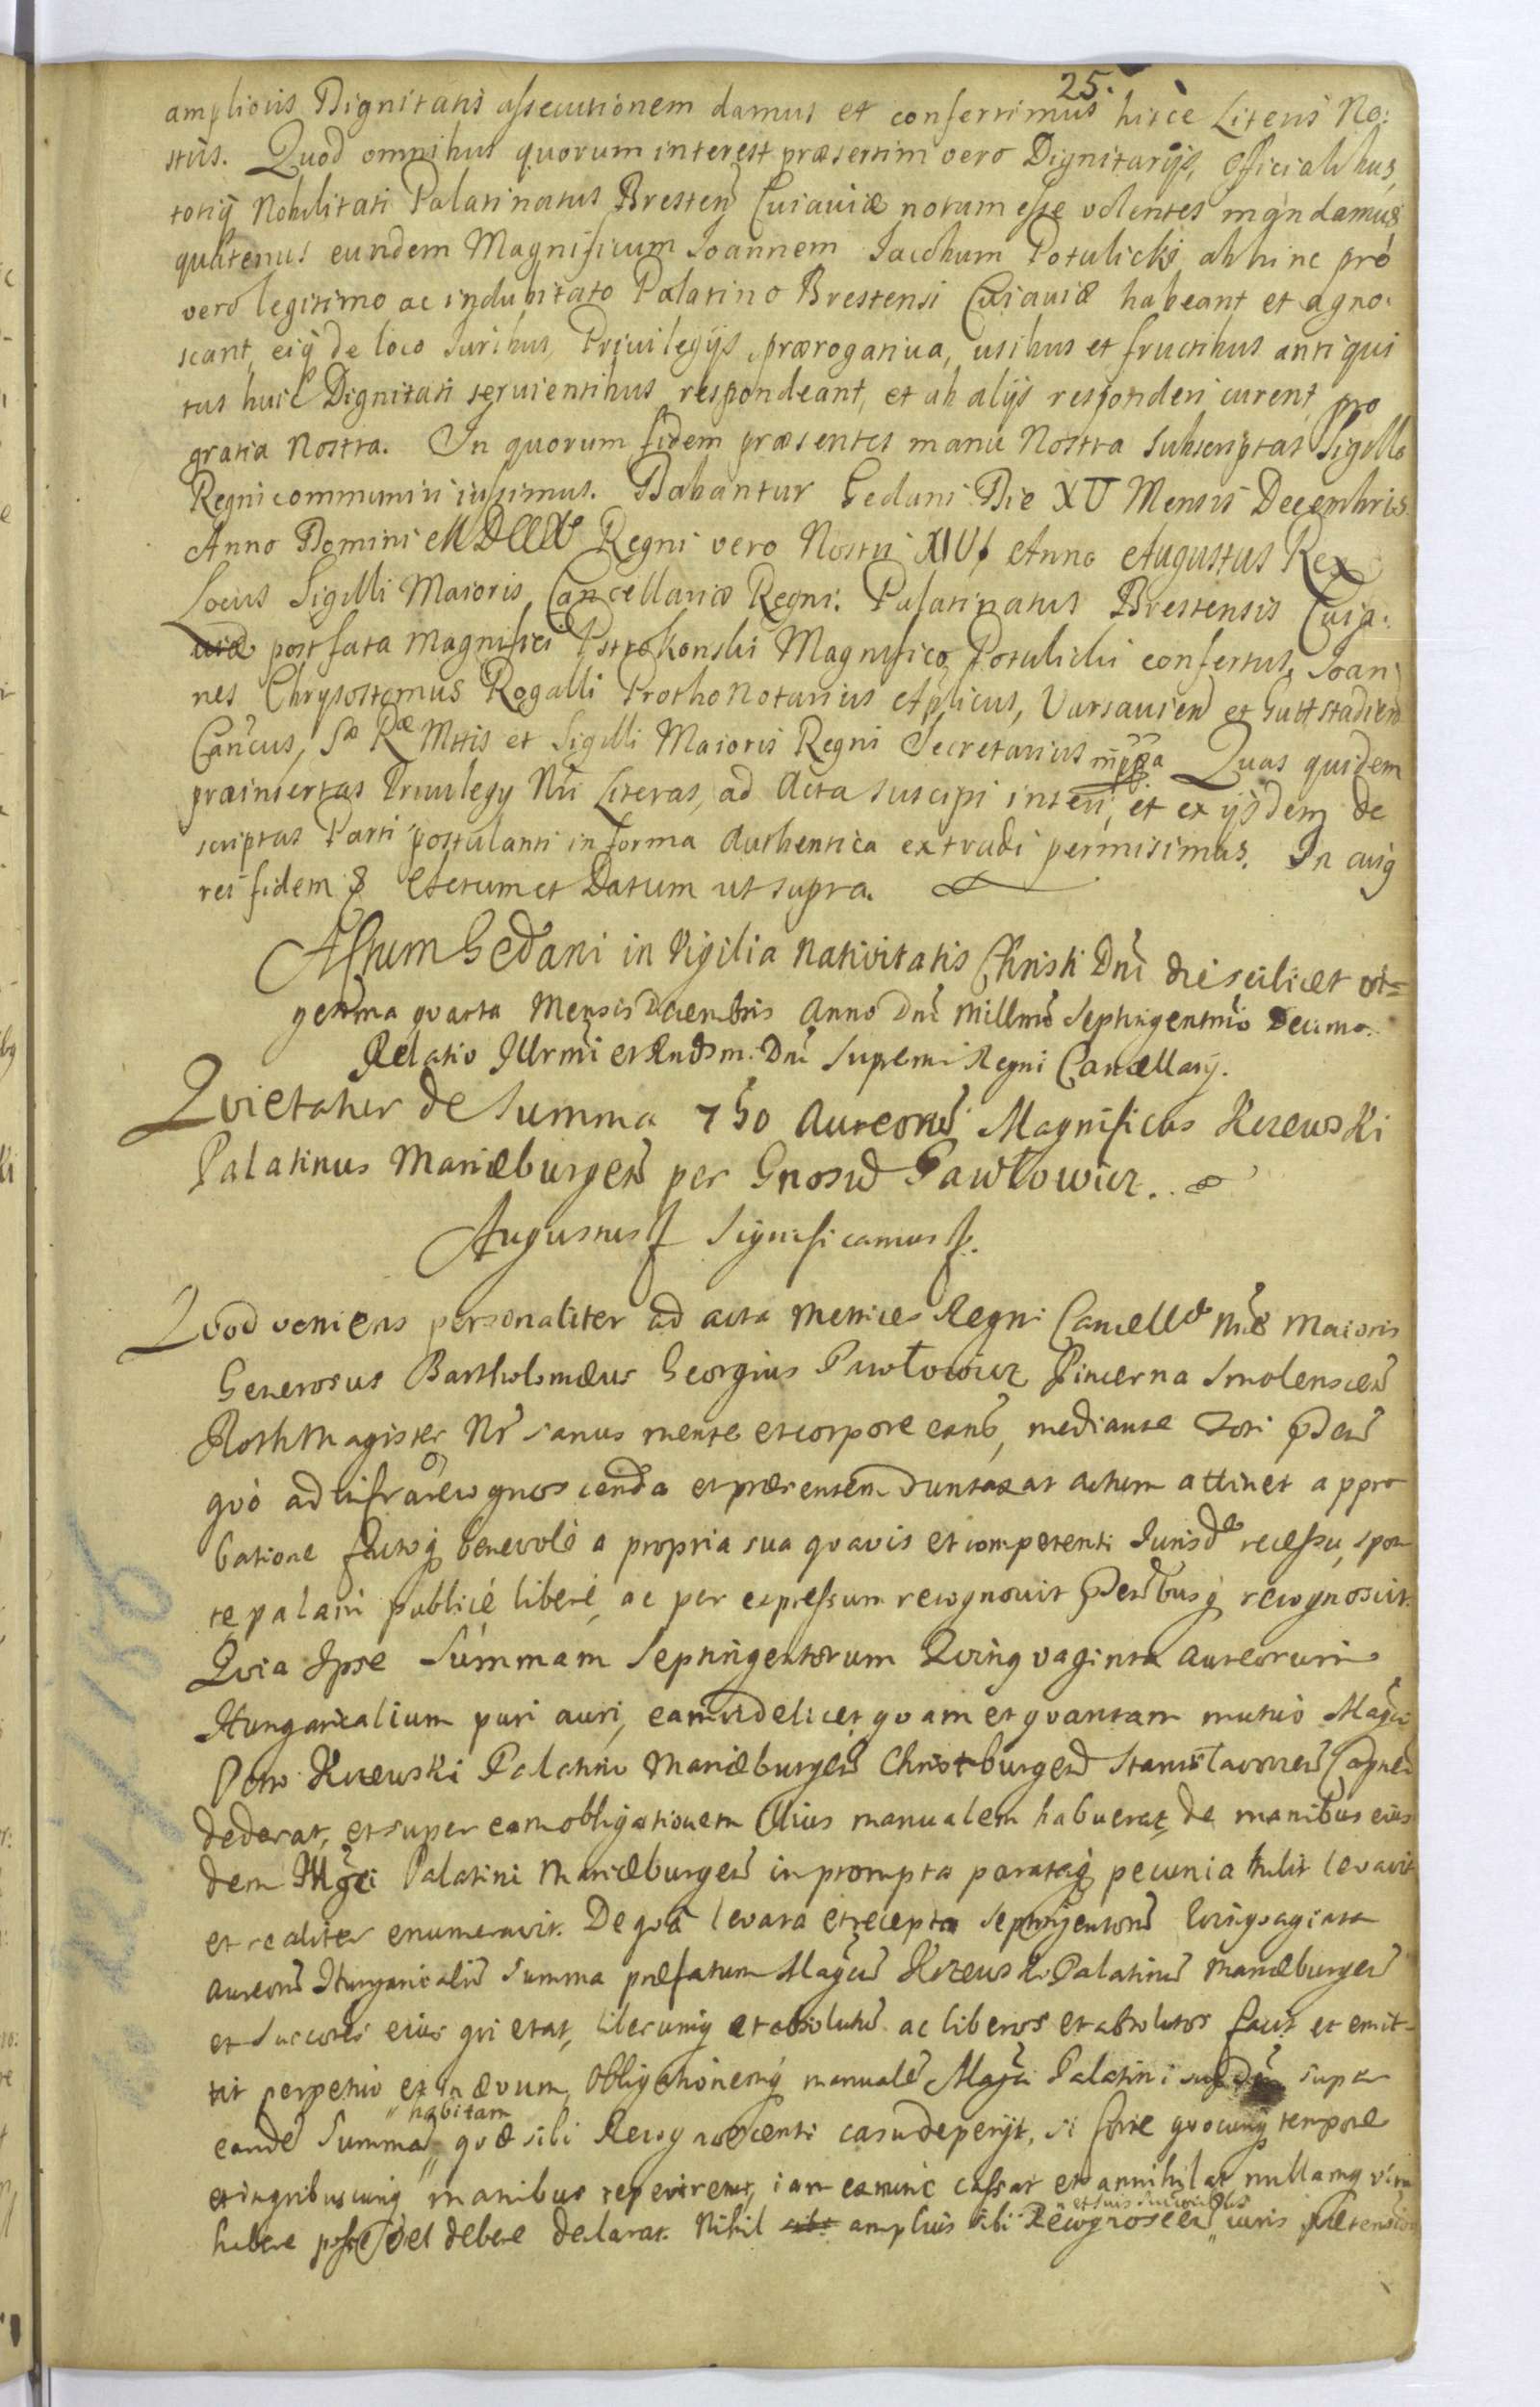 25.
amplioris Dignitatis assecutionem damus et conferrimus hisce Literis No:
stris. Quod omnibus quorum interest præsertim vero Dignitarijs, Officialibus,
totiq̃ Nobilitati Palatinatus Bresteñ Cuiaviæ notum esse volentes mandamus
quatenus eundem Magnificum Ioannem Iacobum Potulicki abhinc pro
vero legitimo ac indubitato Palatino Brestensi Cuiaviæ habeant et agno:
scant, eiq̃ de loco Iuribus, Privilegijs, prærogativa, usibus et fructibus antiqui
tus huic Dignitati servientibus respondeant, et ab alijs responderi curent, pro
gratia Nostra. In quorum fidem præsentes manu Nostra subscriptas Sigillo
Regni communiri iussimus. Dabantur Gedani Die XV Mensis Decembris
Anno Domini MDCCX Regni vero Nostri XIV Anno Augustus Rex
Locus Sigilli Maioris Cancellariæ Regni. Palatinatus Brestensis Cuia:
viæ post fata Magnifici Pstrokonski Magnifico Potulicki confertur. Ioan:
nes Chrysostomus Rogalli Prothonotarius Aplicus, Varsavieñ et Guttstadieñ
Cañcus, Sæ Ræ Mttis et Sigilli Maioris Regni Secretarius mppa Quas quidem
præinsertas Privilegy Nri Literas, ad Acta suscipi inseri, et ex ijsdem de
scriptas Parti postulanti in forma Authentica extradi permisimus. In cuiq̃
rei fidem & Actum et Datum ut supra.
Actum Gedani in Vigilia Nativitatis Christi Dni die scilicet vi=
gesima quarta Mensis Decembris Anno Dni Millmo Septingentmo Decimo.
Relatio Illrmi et Rndsm. Dni Supremi Regni Cancellarij.
Quietatur de Summa 750 Aureorũ Magnificus Kczewski
Palatinus Mariæburgeñ per Gnosũ Pawłowicz.
Augustus & Significamus &.
Quod veniens personaliter ad acta Metrices Regni Cancellæ Nræ Maioris
Generosus Bartholomæus Georgius Pawłowicz Pincerna Smolensceñ
RothMagister Nr sanus mente et corpore exñs, mediante Fori
quò ad infra recognoscenda et præsentem duntaxat actum attinet appro
batione factoq̃ benevolè a propria sua quavis et competenti Iurisde recessu, spon
te palam publicè liberè, ac per expressum recognovit recognoscit.
Quia Ipse Summam Septingentorum Quinquaginta aureorum
Hungaricalium puri auri, eam videlicet quam et quantam mutuò Magco
Petro Kczewski Palatino Mariæburgeñ Christburgeñ Stanisławovieñ Capneo
dederat, et super eam obligationem Illius manualem habuerat, de manibus eius
dem Mgci Palatini Mariæburgeñ in prompta parataq̃ pecunia tulit levavit
et realiter enumeravit. De quâ levata et recepta Septingentorũ Quinquaginta
aureorũ Hungaricaliũ Summa præfatum Magcũ Kczewski Palatinũ Mariæburgeñ
et Succores eius quietat, liberumq̃ et absolutũ ac liberos et absolutos facit et emit=
tit perpetuo et in ævum, Obligationemq̃ manualẽ Magci Palatini super
eandẽ Summã „habitam„ quæ sibi Recognoscenti casu deperijt, si forte quocunq̃ tempore
et in quibuscunq̃ manibus reperiretur, iam ex nunc cassat et annihilat nullamq̃ vim
habere posse vel debere declarat. Nihil amplius sibi Recognosceñ „et suis Succoribus„ iuris prætension